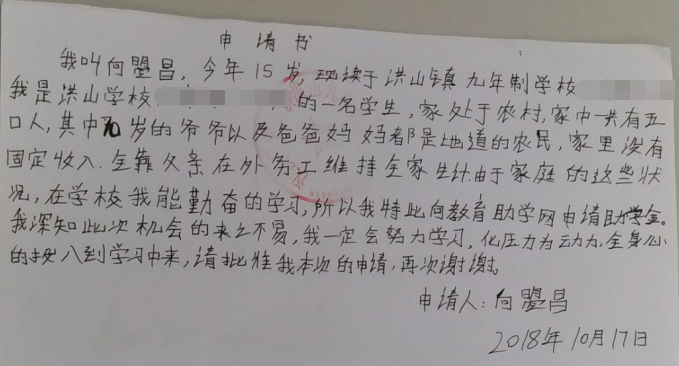 申请书
我叫向曌昌，今年15岁，现读于洪山镇九年制学校
我是洪山学校的一名学生，家处于农村，家中一共有五
口人，其中70岁的爷爷以及爸爸妈妈都是地道的农民，家里没有
固定收入．全靠父亲在外务工维持全家生计．由于家庭的这些状
况，在学校我能勤奋的学习，所以我特此向教育助学网申请助学金。
我深知此次机会的来之不易，我一定会努力学习，化压力为动力．全身心
的投入到学习中来，请批准我本次的申请，再次谢谢。
申请人：向曌昌
2018年10月17日